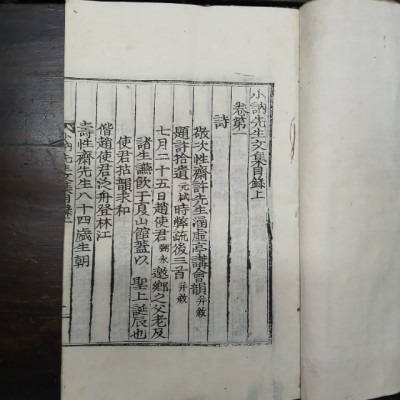 小訥先生文集目錄上
卷第一
詩
敬次性齋許先生涵虛亭講會韻并敘
題許拾遺元栻時弊疏後三首并敘
七月二十五日趙使君永邀鄉之父老及
諸生讌飲于夏山館蓋以聖上誕辰也
使君拈韻求和
偕趙使君泛舟登林江
壽性齋先生八十四歲生朝
訥先生文集目錄